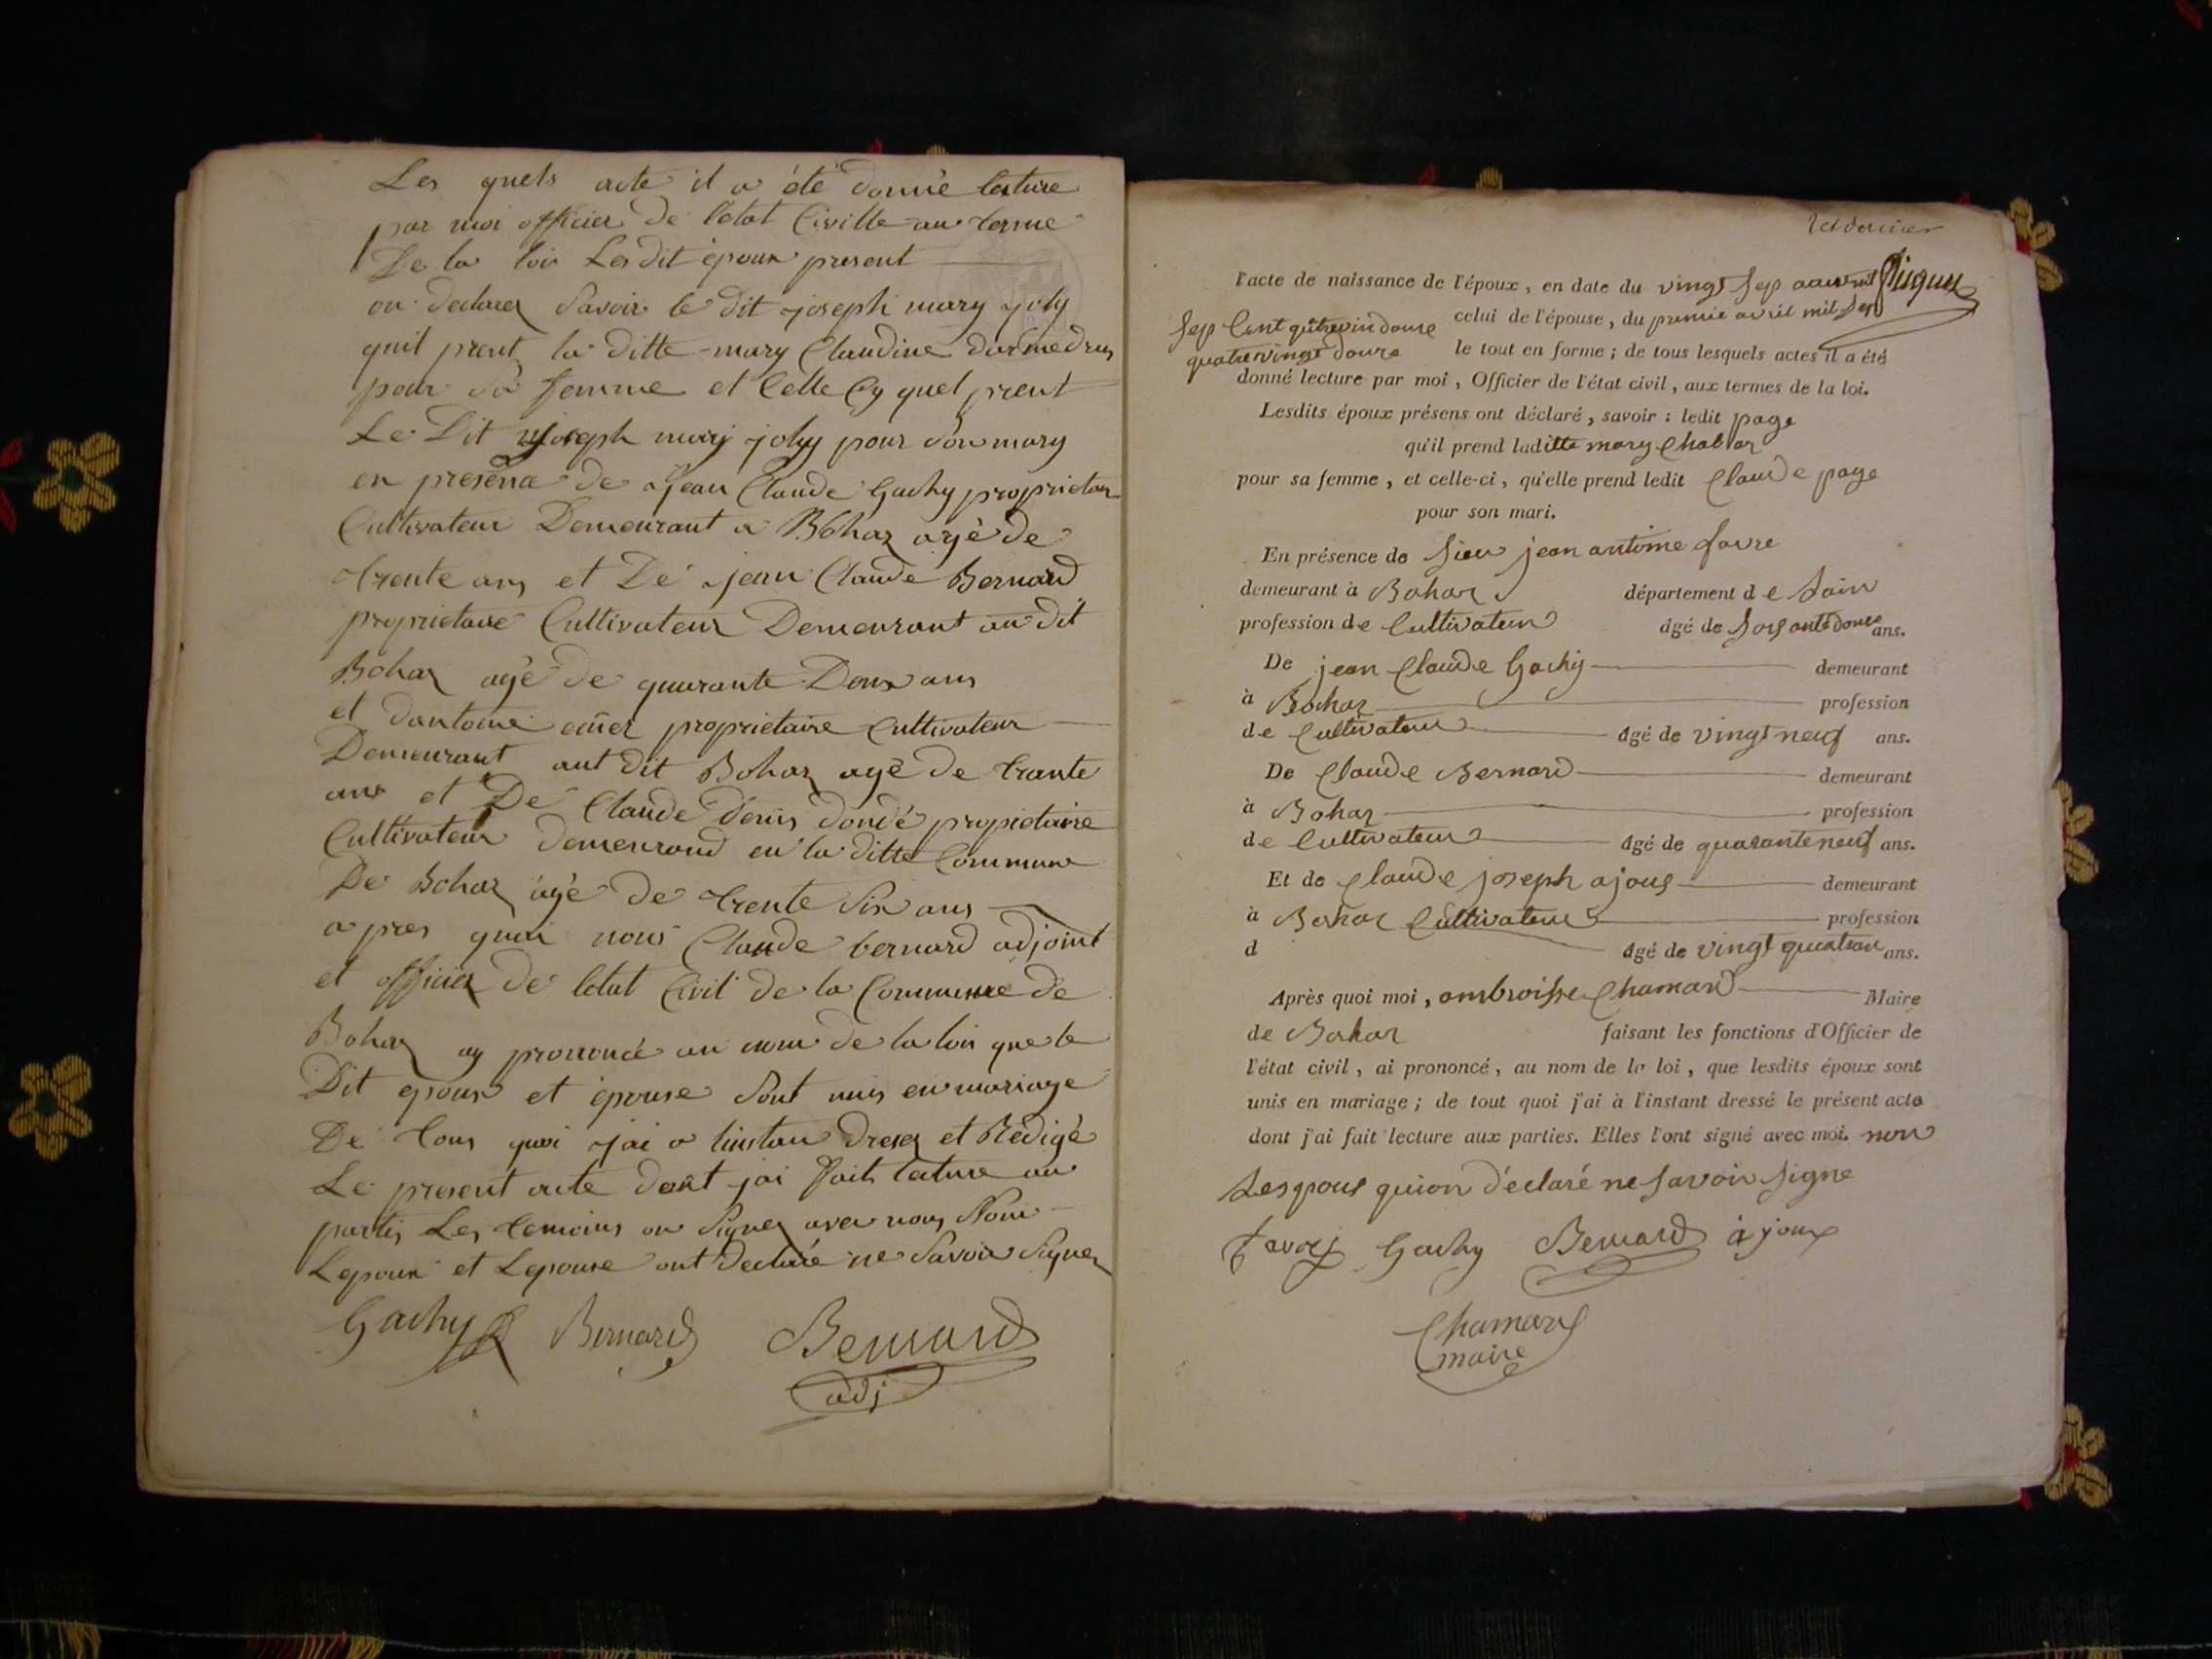 Les quels acte il a été donné lecture
par moi officier de l'etat Civille au terme
De la loi Les dit époux present
on declarez Savoir le dit joseph mary joly
quil prent la ditte mary Claudine
pour Sa femme et Celle Cy quel prent
Le Dit joseph mary joly pour Son mary
en presence de Jean Claude Gachy proprietair
Cultivateur Demeurant a Bohaz agé de
trente ans et De jean Claude Bernard
proprietaire Cultivateur Demeurant au dit
Bohaz agé de quarante Deux ans
et dantoine proprietaire Cultivateur
Demeurant aut dit Bohaz agé de trante
ans et De Claude denis dondé propietaire
Cultivateur demeurand en la ditte Commune
De Bohaz agé de trente Six ans
a pres quoi nous Claude bernard adjoint
et officier de letat Civil de la Commune de
Bohaz ay prononcé au nom de la loi que le
Dit epoux et épouse Sont unis en mariage
De tous quoi jai a linstan dresez et Rédigé
Le present acte dont jai fait lecture au
partis Les temoins on Signez avec nous Non
Lepoux et Lepouse ont declaré ne Savoir Signez
Gachy Bernard Bernard
adj
l'acte de naissance de l'époux, en date du vingt Sep
Sep Cent celui de l'épouse, du premie avril mil Sep
quatrevingt douze le tout en forme ; de tous lesquels actes il a été
donné lecture par moi, Officier de l'état civil, aux termes de la loi.
Lesdits époux présens ont déclaré, savoir : ledit page
qu'il prend laditte mary Chabar
pour sa femme, et celle-ci, qu'elle prend ledit Claude page
pour son mari.
En présence de Sieu jean antoine favre
demeurant à Bohaz département de Lain
profession de Cultivateur âgé de ans.
De jean Claude Gachy demeurant
à Bohaz profession
de Cultivateur âgé de vingt neuf ans.
De Claude Bernard demeurant
à Bohaz profession
de Cultivateur âgé de quarante neuf ans.
Et de Claude joseph ajoux demeurant
à Bohaz Cultivateur profession
d âgé de vingt quatre ans.
Après quoi moi, ambroisse Chamard Maire
de Bohaz faisant les fonctions d'Officier de
l'état civil, ai prononcé, au nom de la loi, que lesdits époux sont
unis en mariage ; de tout quoi j'ai à l'instant dressé le présent acte
dont j'ai fait lecture aux parties. Elles l'ont signé avec moi. non
Les epous quion déclaré ne Savoir Signe
Gachy Bernard ajoux
Chamard
maire